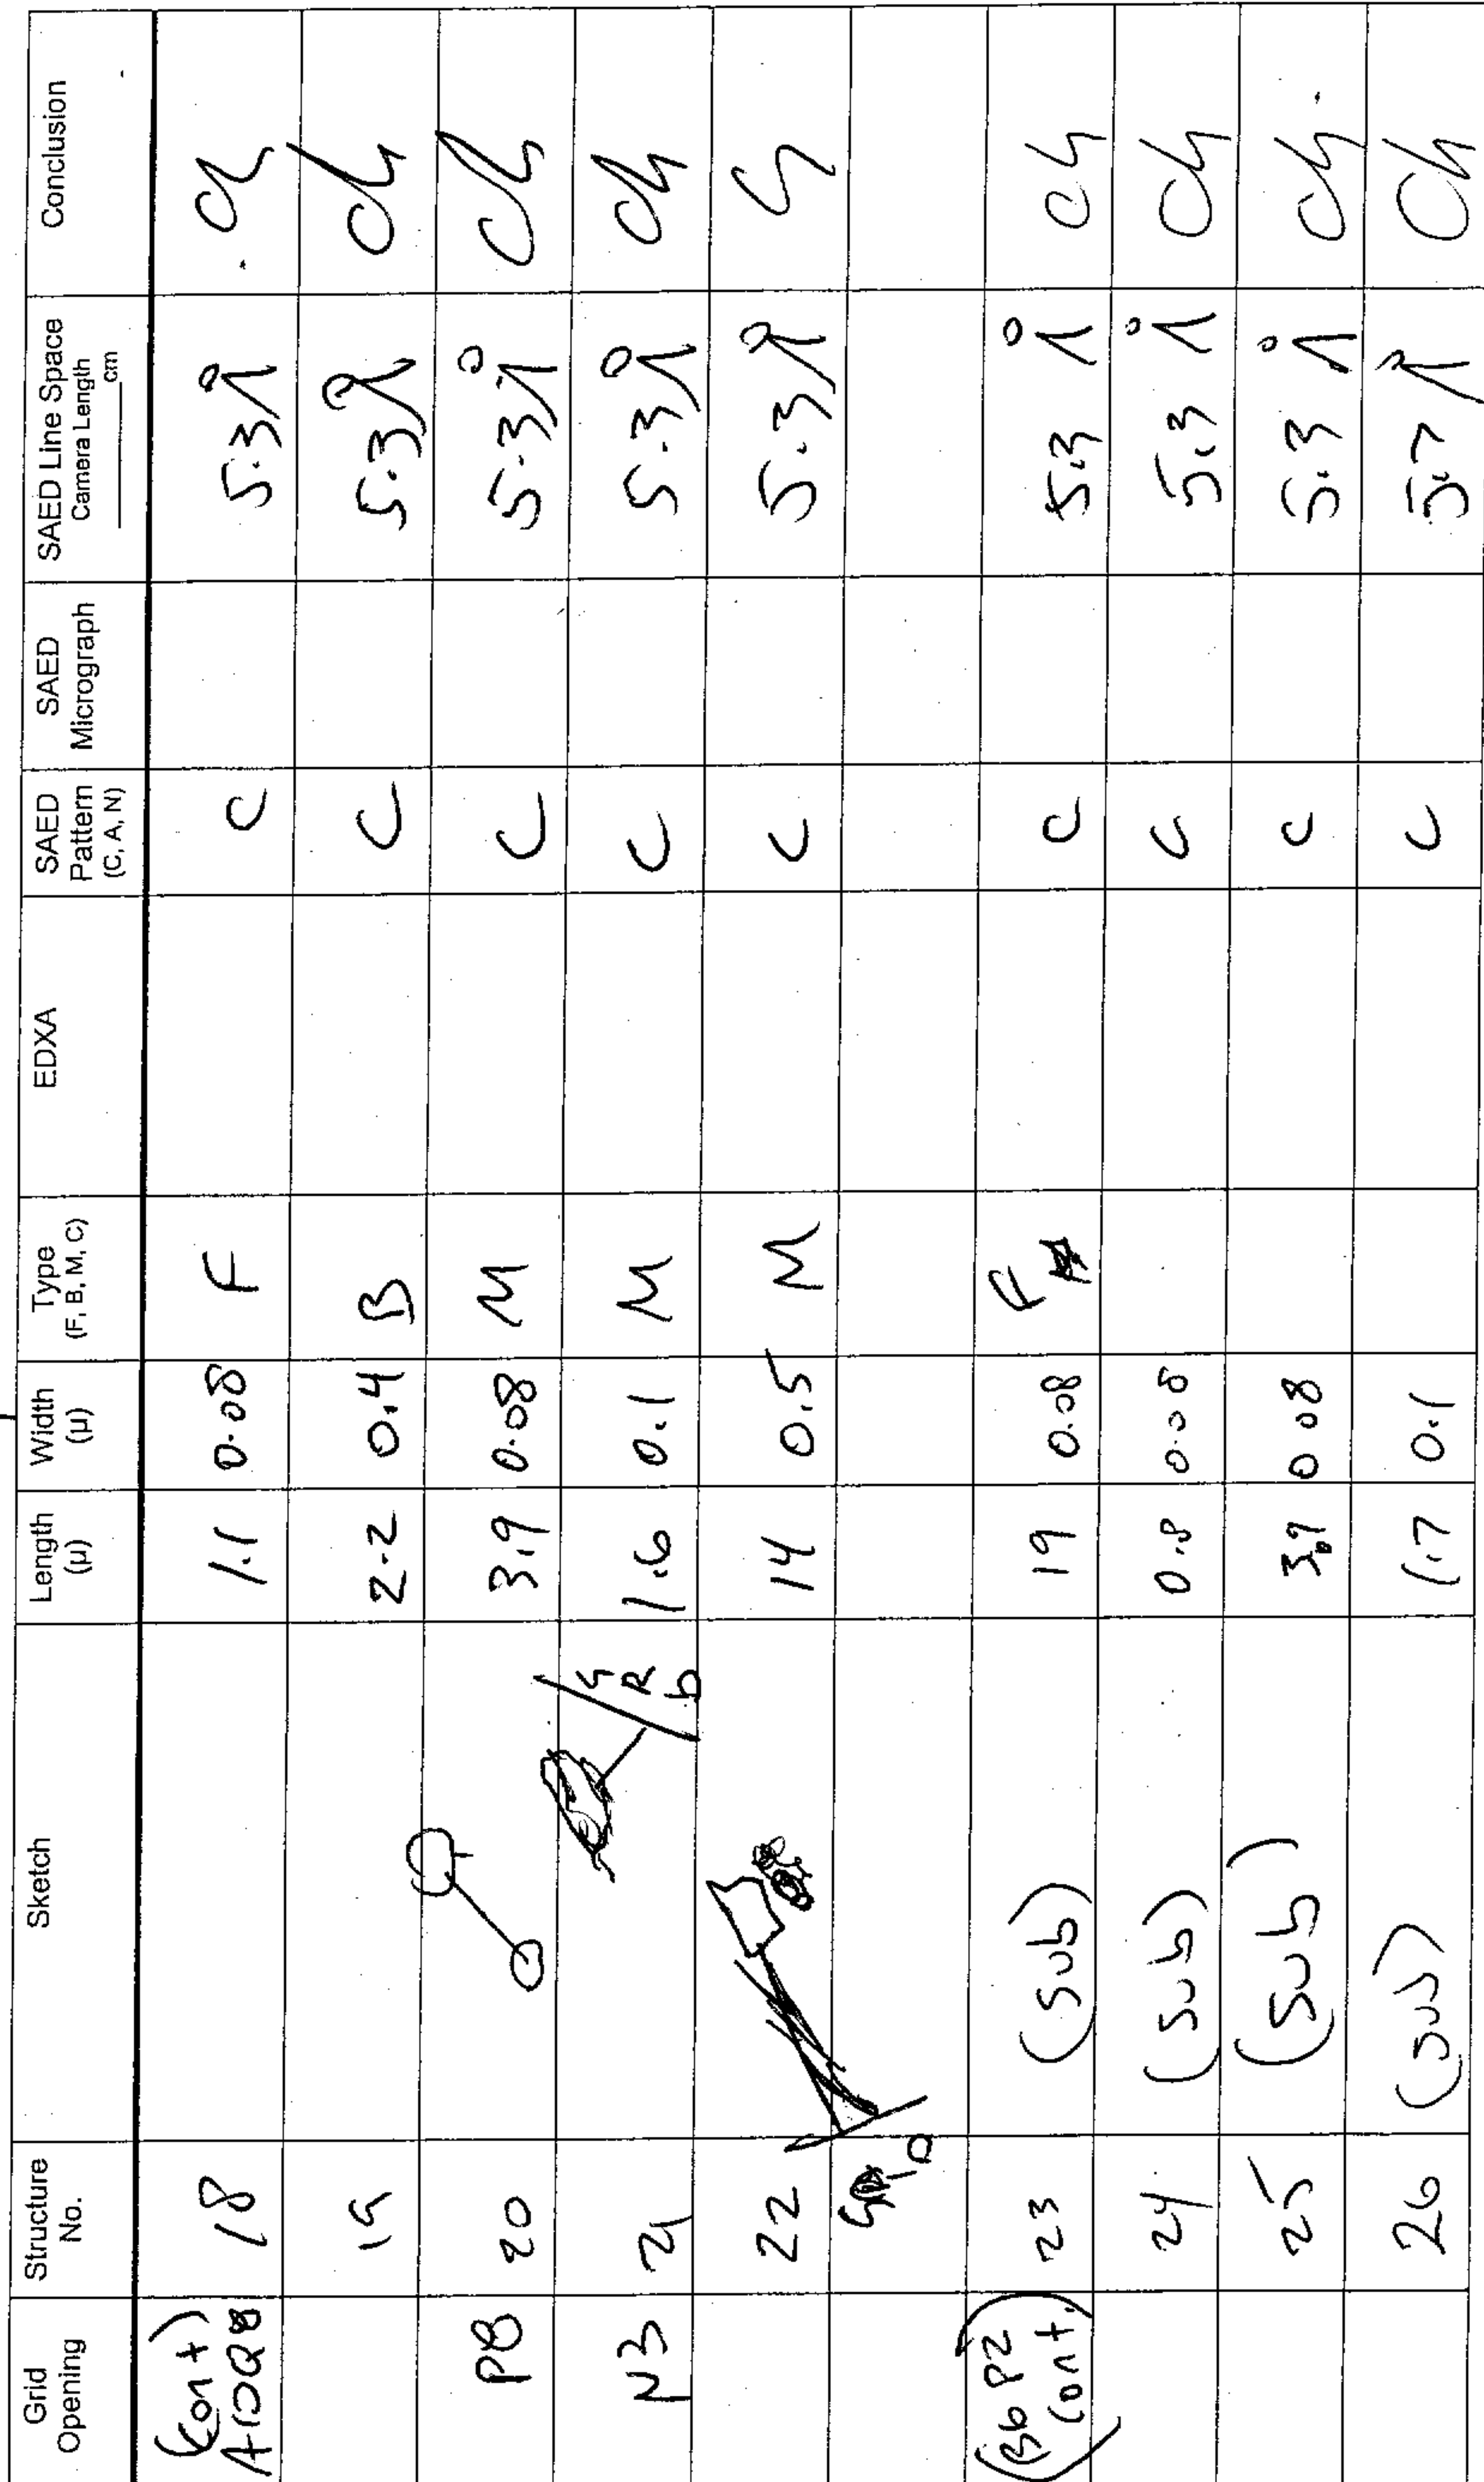 Grid Opening | Structure No. | Sketch | Length (µ) | Width (µ) | Type (F, B, M, C) | EDXA | SAED Pattern (C, A, N) | SAED Micrograph | SAED Line Space Camera Length ______ cm | Conclusion
(Cont) A10Q8 | 18 | | 1.1 | 0.08 | F | | C | | 5.3Å | Ch
19 | | 2.2 | 0.4 | B | | C | | 5.3Å | Ch
P8 | 20 | | 3.9 | 0.08 | M | | C | | 5.3Å | Ch
N3 | 21 | | 1.6 | 0.1 | M | | C | | 5.3Å | Ch
22 | | 14 | 0.5 | M | | C | | 5.3Å | Ch
(B6 P2 Cont.) | 23 | (sub) | 19 | 0.08 | F | | C | | 5.3 Å | Ch
24 | (sub) | 0.8 | 0.08 | | | C | | 5.3 Å | Ch
25 | (sub) | 3.9 | 0.08 | | | C | | 5.3 Å | Ch
26 | (sub) | 1.7 | 0.1 | | | C | | 5.7 Å | Ch